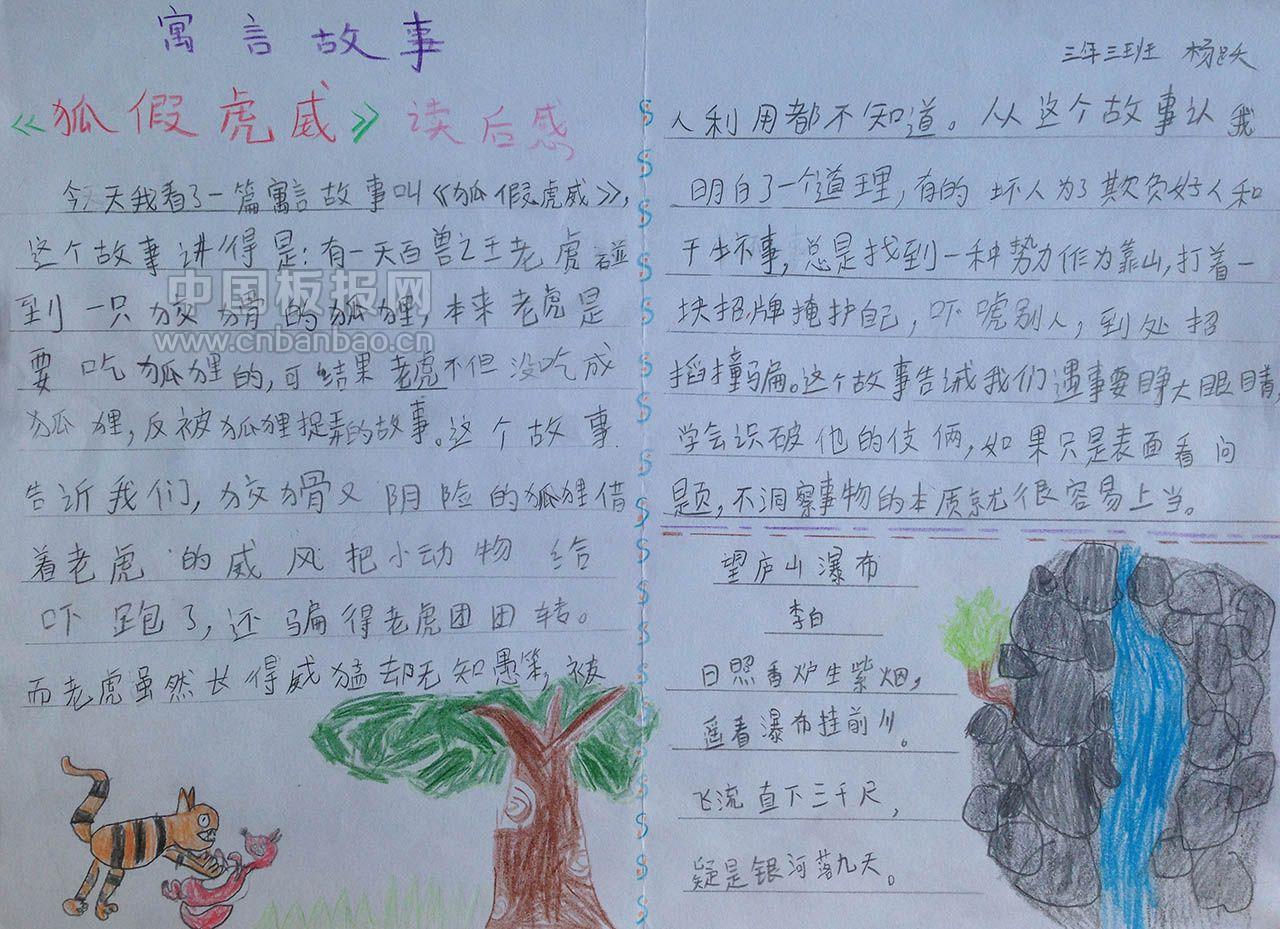 寓言故事
《狐假虎威》读后感
今天我看了一篇寓言故事叫《狐假虎威》,
这个故事讲得是:有一天百兽之王老虎碰
到一只狡猾的狐狸,本来老虎是
要吃狐狸的,可结果老虎不但没吃成
狐狸,反被狐狸捉弄的故事。这个故事
告诉我们,狡猾又阴险的狐狸借
着老虎的威风把小动物给
吓跑了,还骗得老虎团团转。
而老虎虽然长得威猛却无知愚笨,被
中国板报网
www.cnbanbao.cn
三年三班 杨
人利用都不知道。从这个故事认我
明白了一个道理,有的坏人为了欺负好人和
干坏事,总是找到一种势力作为靠山,打着一
块招牌掩护自己,吓唬别人,到处招
摇撞骗。这个故事告诫我们遇事要睁大眼睛,
学会识破他的伎俩,如果只是表面看问
题,不洞察事物的本质就很容易上当。
望庐山瀑布
李白
日照香炉生紫烟,
遥看瀑布挂前川。
飞流直下三千尺,
疑是银河落九天。